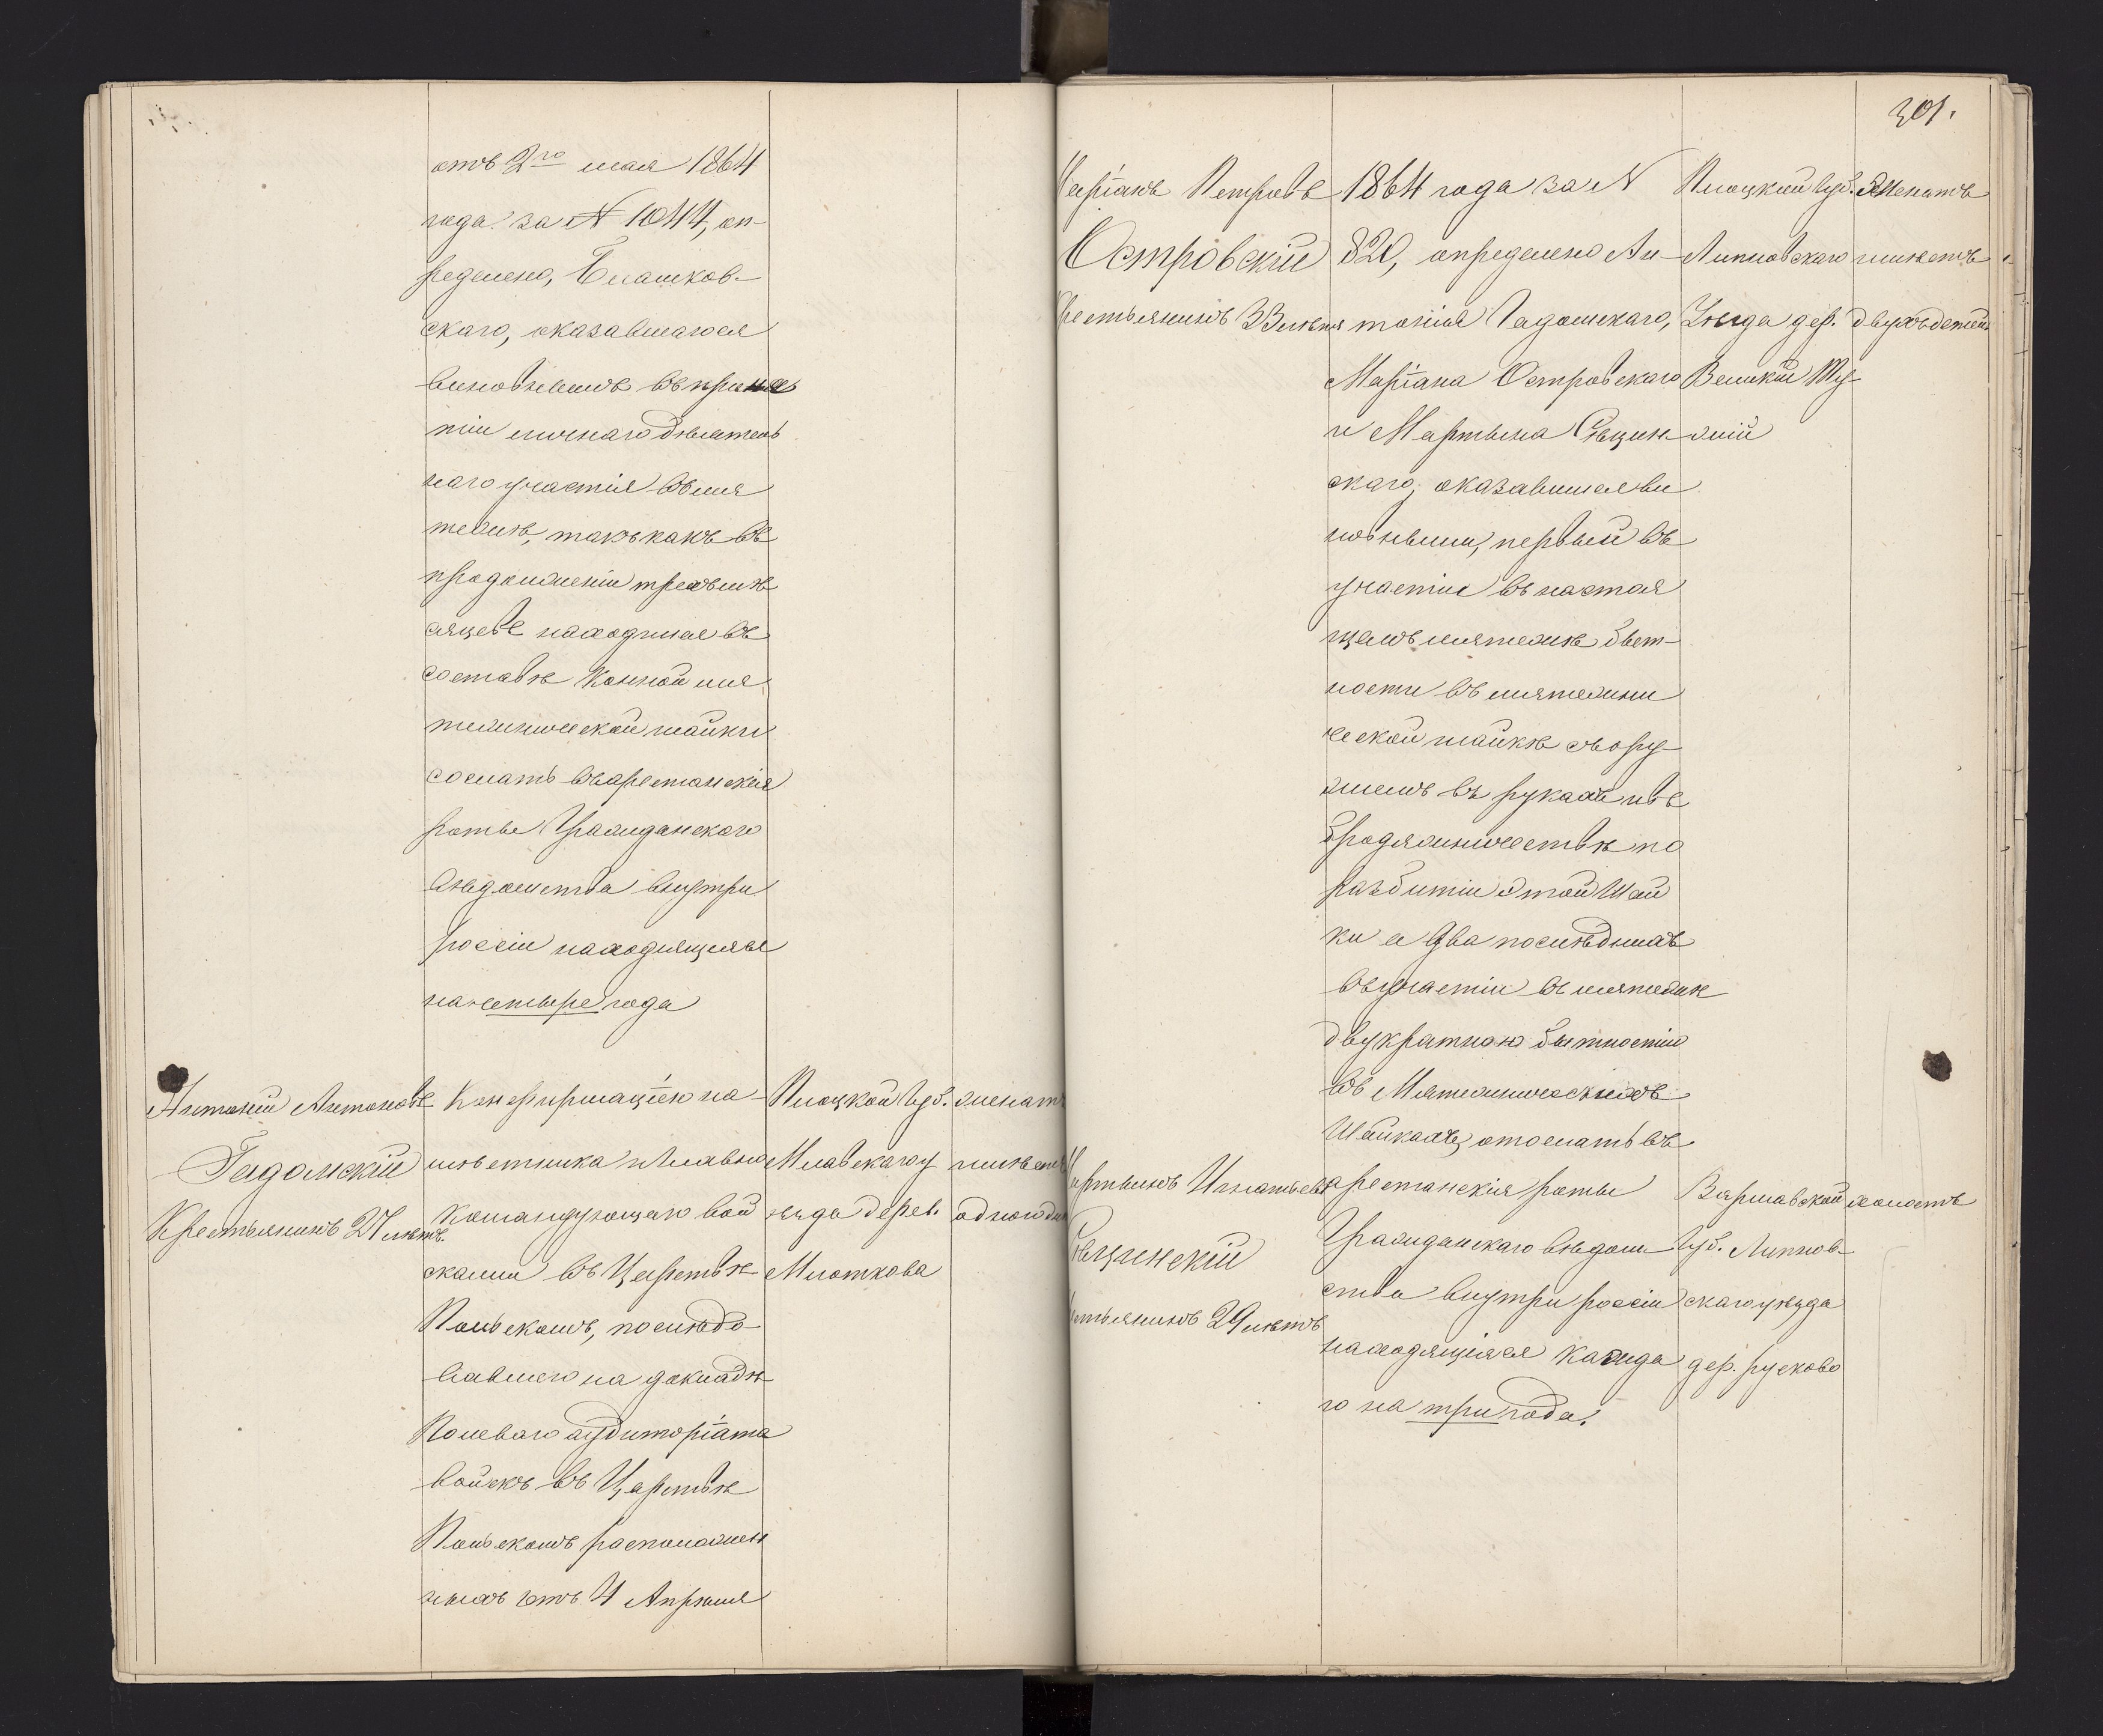 отъ 2го мая 1864
года за N 1044, оп-
ределено, Блашков-
скаго, оказавшагося
виновнымъ въ приня
тіи личнаго дѣятель
наго участія въ мя
тежѣ, такъ какъ въ
продолженіи трехъ мѣ
сяцевъ находился въ
составѣ конной мя
тежнической шайки
сослать въ арестанскія
роты Гражданскаго
вѣдомства внутри
россіи находящіяся
на четыре года
Антоній Антоновъ
Гадомскій
Крестьянинъ 27 лѣтъ.
Конфирмаціею на
мѣстника и Главно
Командующаго вой
сками въ Царствѣ
Польскомъ, послѣдо-
вавшею на докладѣ
Полеваго аудиторіата
войскъ въ Царствѣ
Польскомъ расположен
ныхъ отъ 4 Апрѣля
Плоцкой Губ.
Млавскаго у
ѣзда дерев.
Млоткова
женатъ
имѣетъ
одного
301.
Маріанъ Петровъ
Островскій
Крестьянинъ 33 лѣтъ
1864 года за N
820, определено Ан-
тонія Гадомскаго,
Маріана Островскаго
и Мартына Свѣцин-
скаго, оказавшихся ви
новными, первый въ
участіи въ настоя
щемъ мятежѣ быт-
ности въ мятежни
ческой шайкѣ съ ору
жіемъ въ рукахъ и въ
бродяжничествѣ по
разбитіи этой Шай
ки а два послѣднихъ
въ участіи въ мятежѣ
двукратною бытностію
въ Мятежническихъ
Шайкахъ, отослать въ
арестанскія роты
Гражданскаго вѣдом-
ства внутри россіи
находящіяся каждаго
го на три года.
Плоцкой Губ.
Липновскаго
Уѣзда дер.
Великій
Женатъ
имѣетъ
двухъ детей
Мартынъ Игнатьевъ
Свѣцинскій
Крестьянинъ 29 лѣтъ
Варшавской
Губ. Липнов-
скаго уѣзда
дер. русково
холостъ